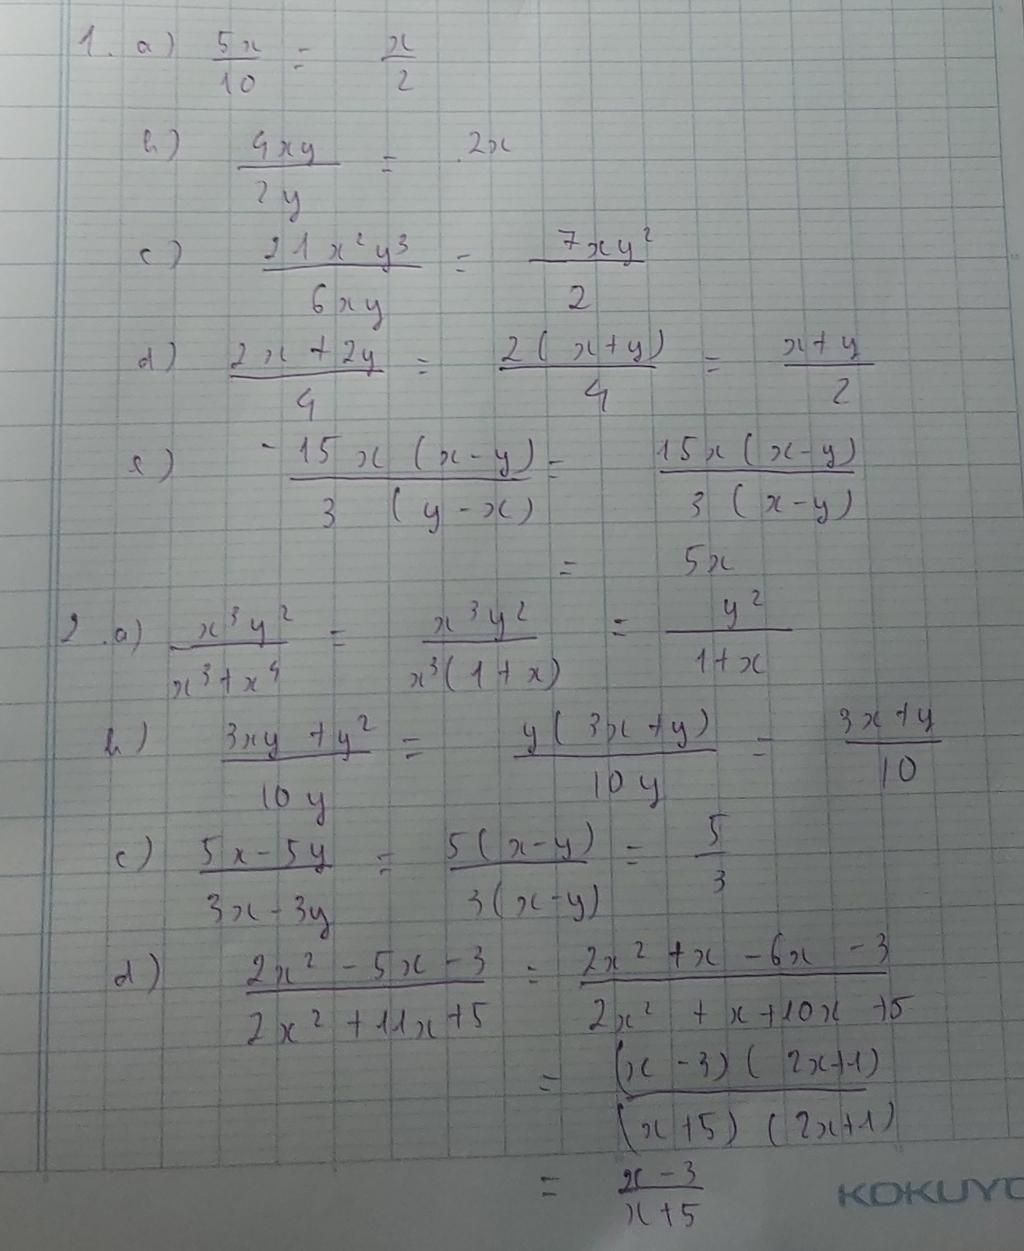 1. a) 5x/10 = x/2
b) 4xy/2y = 2x
c) 21x²y³/6xy = 7xy²/2
d) 2x + 2y/4 = 2(x+y)/4 = x+y/2
e) -15x(x-y)/3(y-x) = 15x(x-y)/3(x-y)
= 5x
2. a) x³y²/x³+x⁴ = x³y²/x³(1+x) = y²/1+x
b) 3xy+y²/10y = y(3x+y)/10y = 3x+y/10
c) 5x-5y/3x-3y = 5(x-y)/3(x-y) = 5/3
d) 2x²-5x-3/2x²+11x+5 = 2x²+x-6x-3/2x²+x+10x+5
= (x-3)(2x+1)/(x+5)(2x+1)
= x-3/x+5
KOKUYO